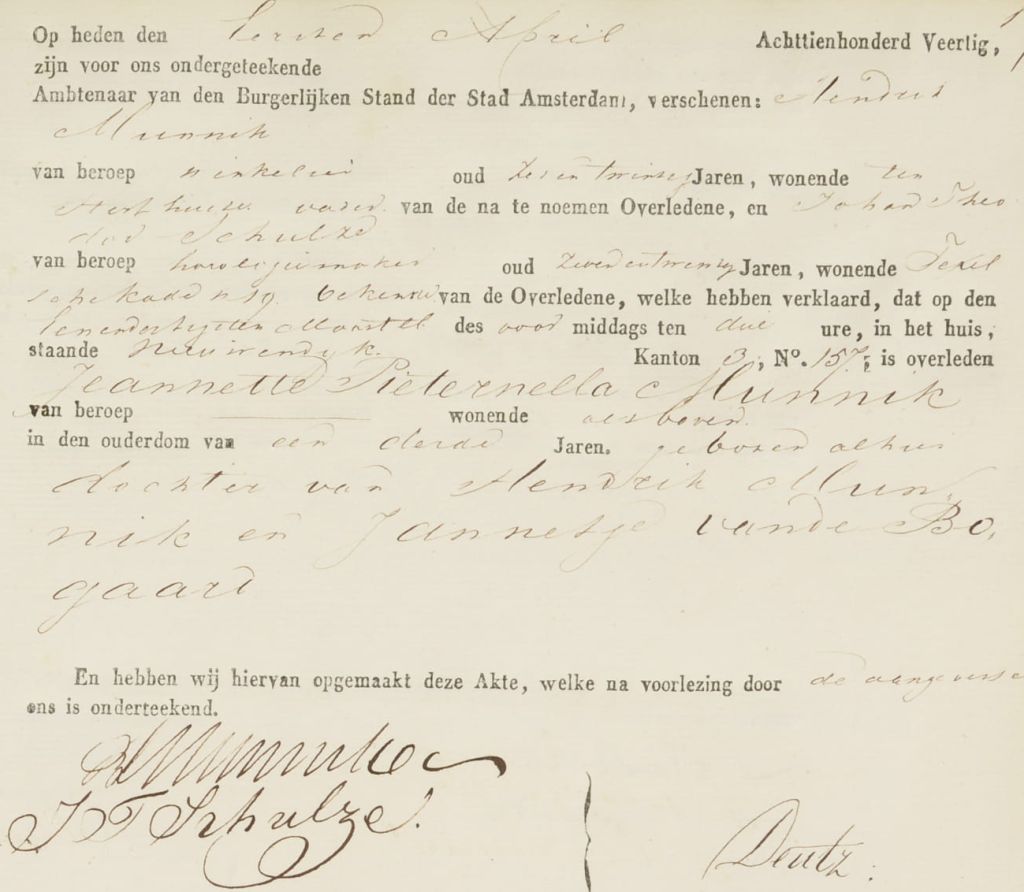 Op heden den Eersten April Achttienhonderd Veertig,
zijn voor ons ondergeteekende
Ambtenaar van den Burgerlijken Stand der Stad Amsterdam, verschenen: Hendrik
Munnik
van beroep winkelier oud Zesentwintig Jaren, wonende ten
Sterfhuize vader van de na te noemen Overledene, en Johan Theo
dor Schulze
van beroep horologiemaker oud Zevenentwintig Jaren, wonende Texel
sche kade bekende van de Overledene, welke hebben verklaard, dat op den
Eenendertigsten Maart des voor middags ten drie ure, in het huis,
staande Nieuwendijk. Kanton 3, No. 157, is overleden
Jeannette Pieternella Munnik
van beroep wonende alsboven.
in den ouderdom van een derde Jaren. geboren alhier
dochter van Hendrik Mun
nik en Jannetje vande Bo,
gaard
En hebben wij hiervan opgemaakt deze Akte, welke na voorlezing door de aangevers e
ons is onderteekend.
H Munnik
J T Schulze.
Deutz.